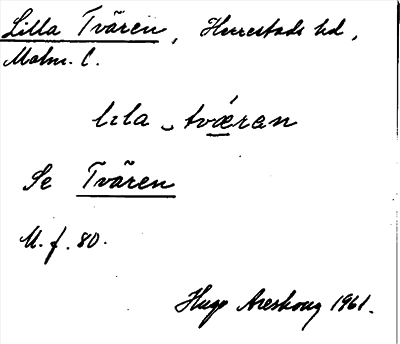 Lilla Tvären, Herrestads hd,
Malm. l.
lɩla ‿ tvǽran
Se Tvären
M. f. 80.
Hugo Areskoug 1961.